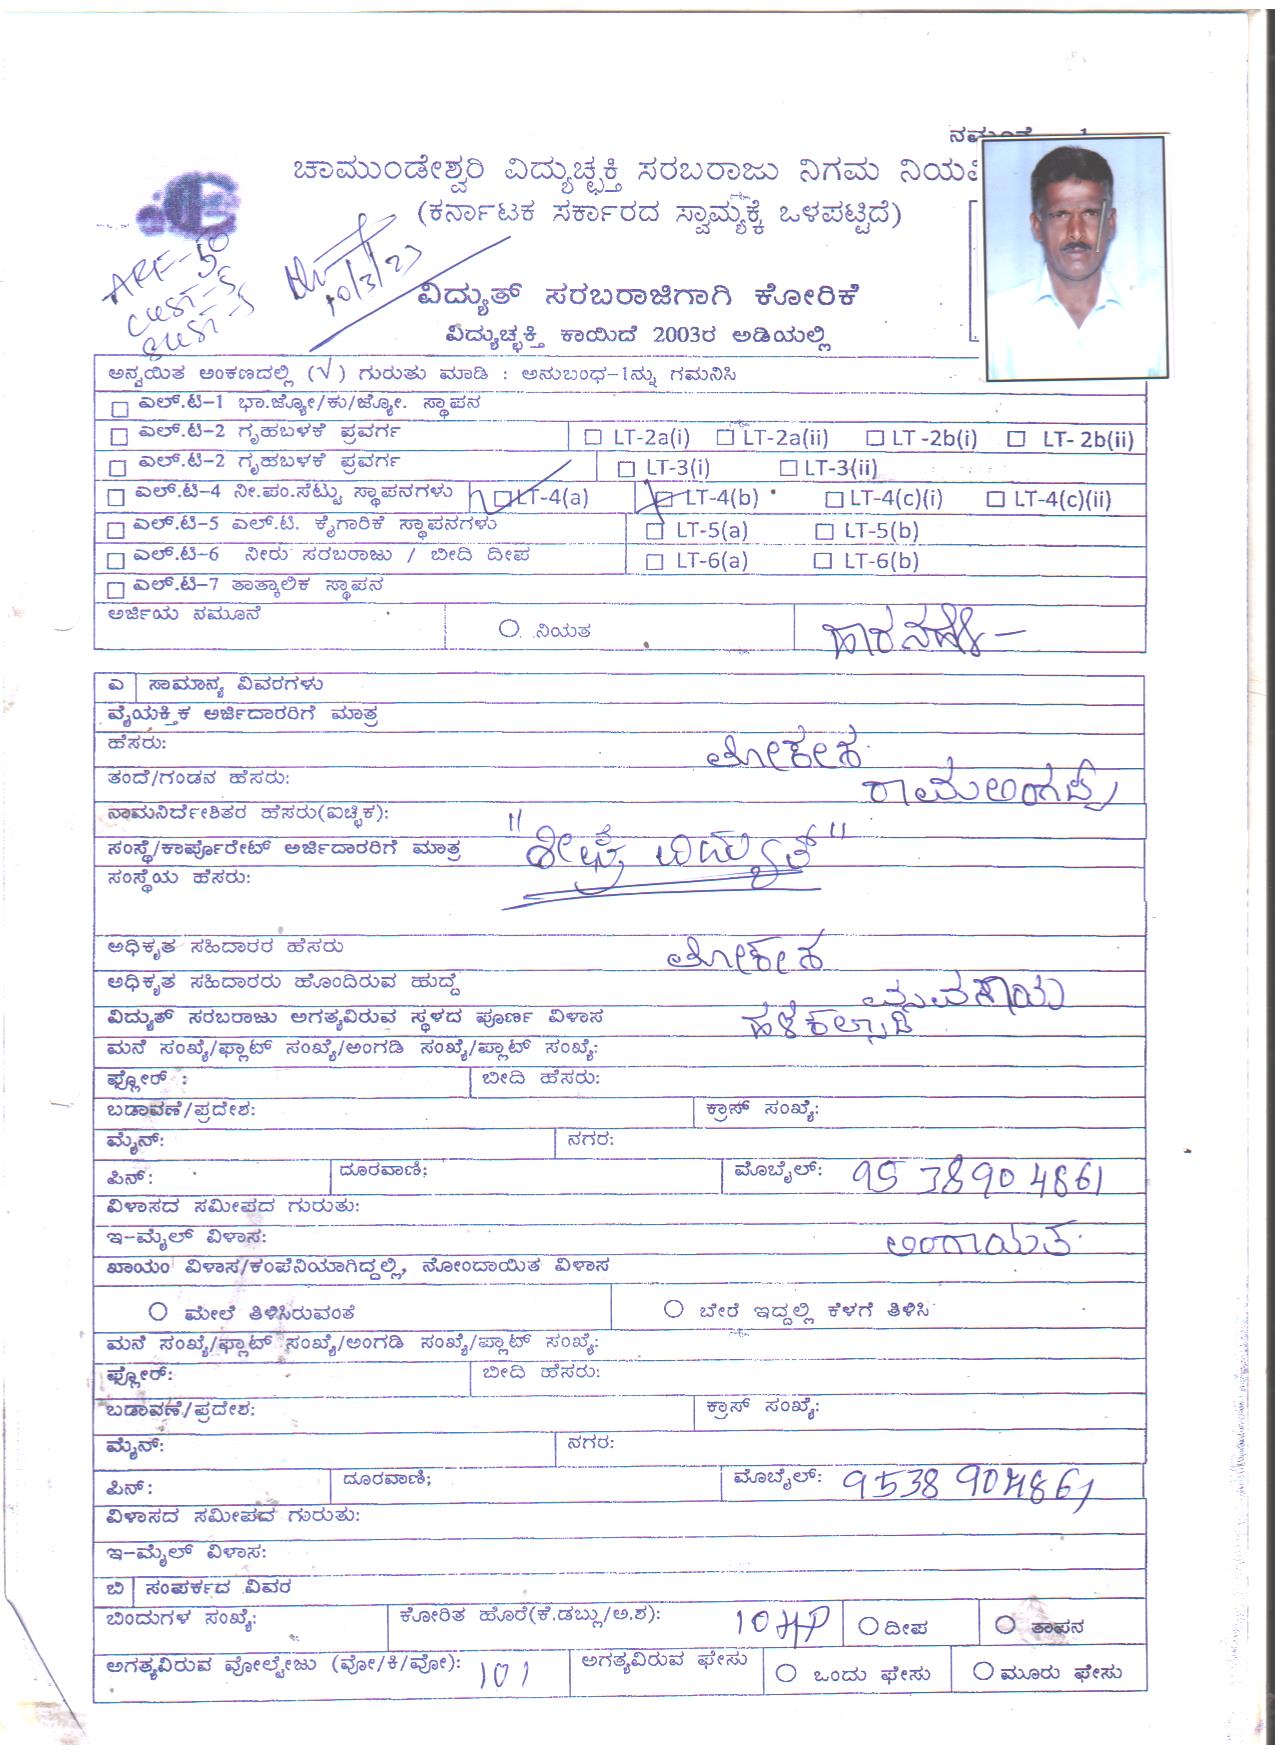 ನಮೂನೆ - 1
ಚಾಮುಂಡೇಶ್ವರಿ ವಿದ್ಯುಚ್ಛಕ್ತಿ ಸರಬರಾಜು ನಿಗಮ
(ಕರ್ನಾಟಕ ಸರ್ಕಾರದ ಸ್ವಾಮ್ಯಕ್ಕೆ ಒಳಪಟ್ಟಿದೆ)
ARF-50
CUST-5
10/3/23
ವಿದ್ಯುತ್ ಸರಬರಾಜಿಗಾಗಿ ಕೋರಿಕೆ
ವಿದ್ಯುಚ್ಛಕ್ತಿ ಕಾಯಿದೆ 2003ರ ಅಡಿಯಲ್ಲಿ
ಅನ್ವಯಿತ ಅಂಕಣದಲ್ಲಿ (√) ಗುರುತು ಮಾಡಿ : ಅನುಬಂಧ-1ನ್ನು ಗಮನಿಸಿ
ಎಲ್.ಟಿ-1 ಭಾ.ಜ್ಯೋ/ಕು/ಜ್ಯೋ. ಸ್ಥಾಪನ
ಎಲ್.ಟಿ-2 ಗೃಹಬಳಕೆ ಪ್ರವರ್ಗ LT-2a(i) LT-2a(ii) LT -2b(i) LT- 2b(ii)
ಎಲ್.ಟಿ-2 ಗೃಹಬಳಕೆ ಪ್ರವರ್ಗ LT-3(i) LT-3(ii)
ಎಲ್.ಟಿ-4 ನೀ.ಪಂ.ಸೆಟ್ಟು ಸ್ಥಾಪನಗಳು LT-4(a) LT-4(b) LT-4(c)(i) LT-4(c)(ii)
ಎಲ್.ಟಿ-5 ಎಲ್.ಟಿ. ಕೈಗಾರಿಕೆ ಸ್ಥಾಪನಗಳು LT-5(a) LT-5(b)
ಎಲ್.ಟಿ-6 ನೀರು ಸರಬರಾಜು / ಬೀದಿ ದೀಪ LT-6(a) LT-6(b)
ಎಲ್.ಟಿ-7 ತಾತ್ಕಾಲಿಕ ಸ್ಥಾಪನ
ಅರ್ಜಿಯ ನಮೂನೆ ನಿಯತ ಹಾರನಹಳ್ಳಿ
ಎ ಸಾಮಾನ್ಯ ವಿವರಗಳು
ವೈಯಕ್ತಿಕ ಅರ್ಜಿದಾರರಿಗೆ ಮಾತ್ರ
ಹೆಸರು: ಲೋಕೇಶ
ತಂದೆ/ಗಂಡನ ಹೆಸರು:
ನಾಮನಿರ್ದೇಶಿತರ ಹೆಸರು(ಐಚ್ಛಿಕ):
ಸಂಸ್ಥೆ/ಕಾರ್ಪೊರೇಟ್ ಅರ್ಜಿದಾರರಿಗೆ ಮಾತ್ರ "ಶೀಘ್ರ ವಿದ್ಯುತ್"
ಸಂಸ್ಥೆಯ ಹೆಸರು:
ಅಧಿಕೃತ ಸಹಿದಾರರ ಹೆಸರು ಲೋಕೇಶ
ಅಧಿಕೃತ ಸಹಿದಾರರು ಹೊಂದಿರುವ ಹುದ್ದೆ ವ್ಯವಸಾಯ
ವಿದ್ಯುತ್ ಸರಬರಾಜು ಅಗತ್ಯವಿರುವ ಸ್ಥಳದ ಪೂರ್ಣ ವಿಳಾಸ
ಮನೆ ಸಂಖ್ಯೆ/ಫ್ಲಾಟ್ ಸಂಖ್ಯೆ/ಅಂಗಡಿ ಸಂಖ್ಯೆ/ಪ್ಲಾಟ್ ಸಂಖ್ಯೆ:
ಫ್ಲೋರ್ : ಬೀದಿ ಹೆಸರು:
ಬಡಾವಣೆ/ಪ್ರದೇಶ: ಕ್ರಾಸ್ ಸಂಖ್ಯೆ:
ಮೈನ್: ನಗರ:
ಪಿನ್: ದೂರವಾಣಿ; ಮೊಬೈಲ್: 9538904861
ವಿಳಾಸದ ಸಮೀಪದ ಗುರುತು:
ಇ-ಮೈಲ್ ವಿಳಾಸ: ಲಿಂಗಾಯತ
ಖಾಯಂ ವಿಳಾಸ/ಕಂಪೆನಿಯಾಗಿದ್ದಲ್ಲಿ, ನೋಂದಾಯಿತ ವಿಳಾಸ
ಮೇಲೆ ತಿಳಿಸಿರುವಂತೆ ಬೇರೆ ಇದ್ದಲ್ಲಿ ಕೆಳಗೆ ತಿಳಿಸಿ
ಮನೆ ಸಂಖ್ಯೆ/ಫ್ಲಾಟ್ ಸಂಖ್ಯೆ/ಅಂಗಡಿ ಸಂಖ್ಯೆ/ಪ್ಲಾಟ್ ಸಂಖ್ಯೆ:
ಫ್ಲೋರ್: ಬೀದಿ ಹೆಸರು:
ಬಡಾವಣೆ/ಪ್ರದೇಶ: ಕ್ರಾಸ್ ಸಂಖ್ಯೆ:
ಮೈನ್: ನಗರ:
ಪಿನ್: ದೂರವಾಣಿ; ಮೊಬೈಲ್: 9538904861
ವಿಳಾಸದ ಸಮೀಪದ ಗುರುತು:
ಇ-ಮೈಲ್ ವಿಳಾಸ:
ಬಿ ಸಂಪರ್ಕದ ವಿವರ
ಬಿಂದುಗಳ ಸಂಖ್ಯೆ: ಕೋರಿತ ಹೊರೆ(ಕೆ.ಡಬ್ಲು/ಅ.ಶ): 10HP ದೀಪ ತಾಪನ
ಅಗತ್ಯವಿರುವ ವೋಲ್ಟೇಜು (ವೋ/ಕಿ/ವೋ): 101 ಅಗತ್ಯವಿರುವ ಫೇಸು ಒಂದು ಫೇಸು ಮೂರು ಫೇಸು